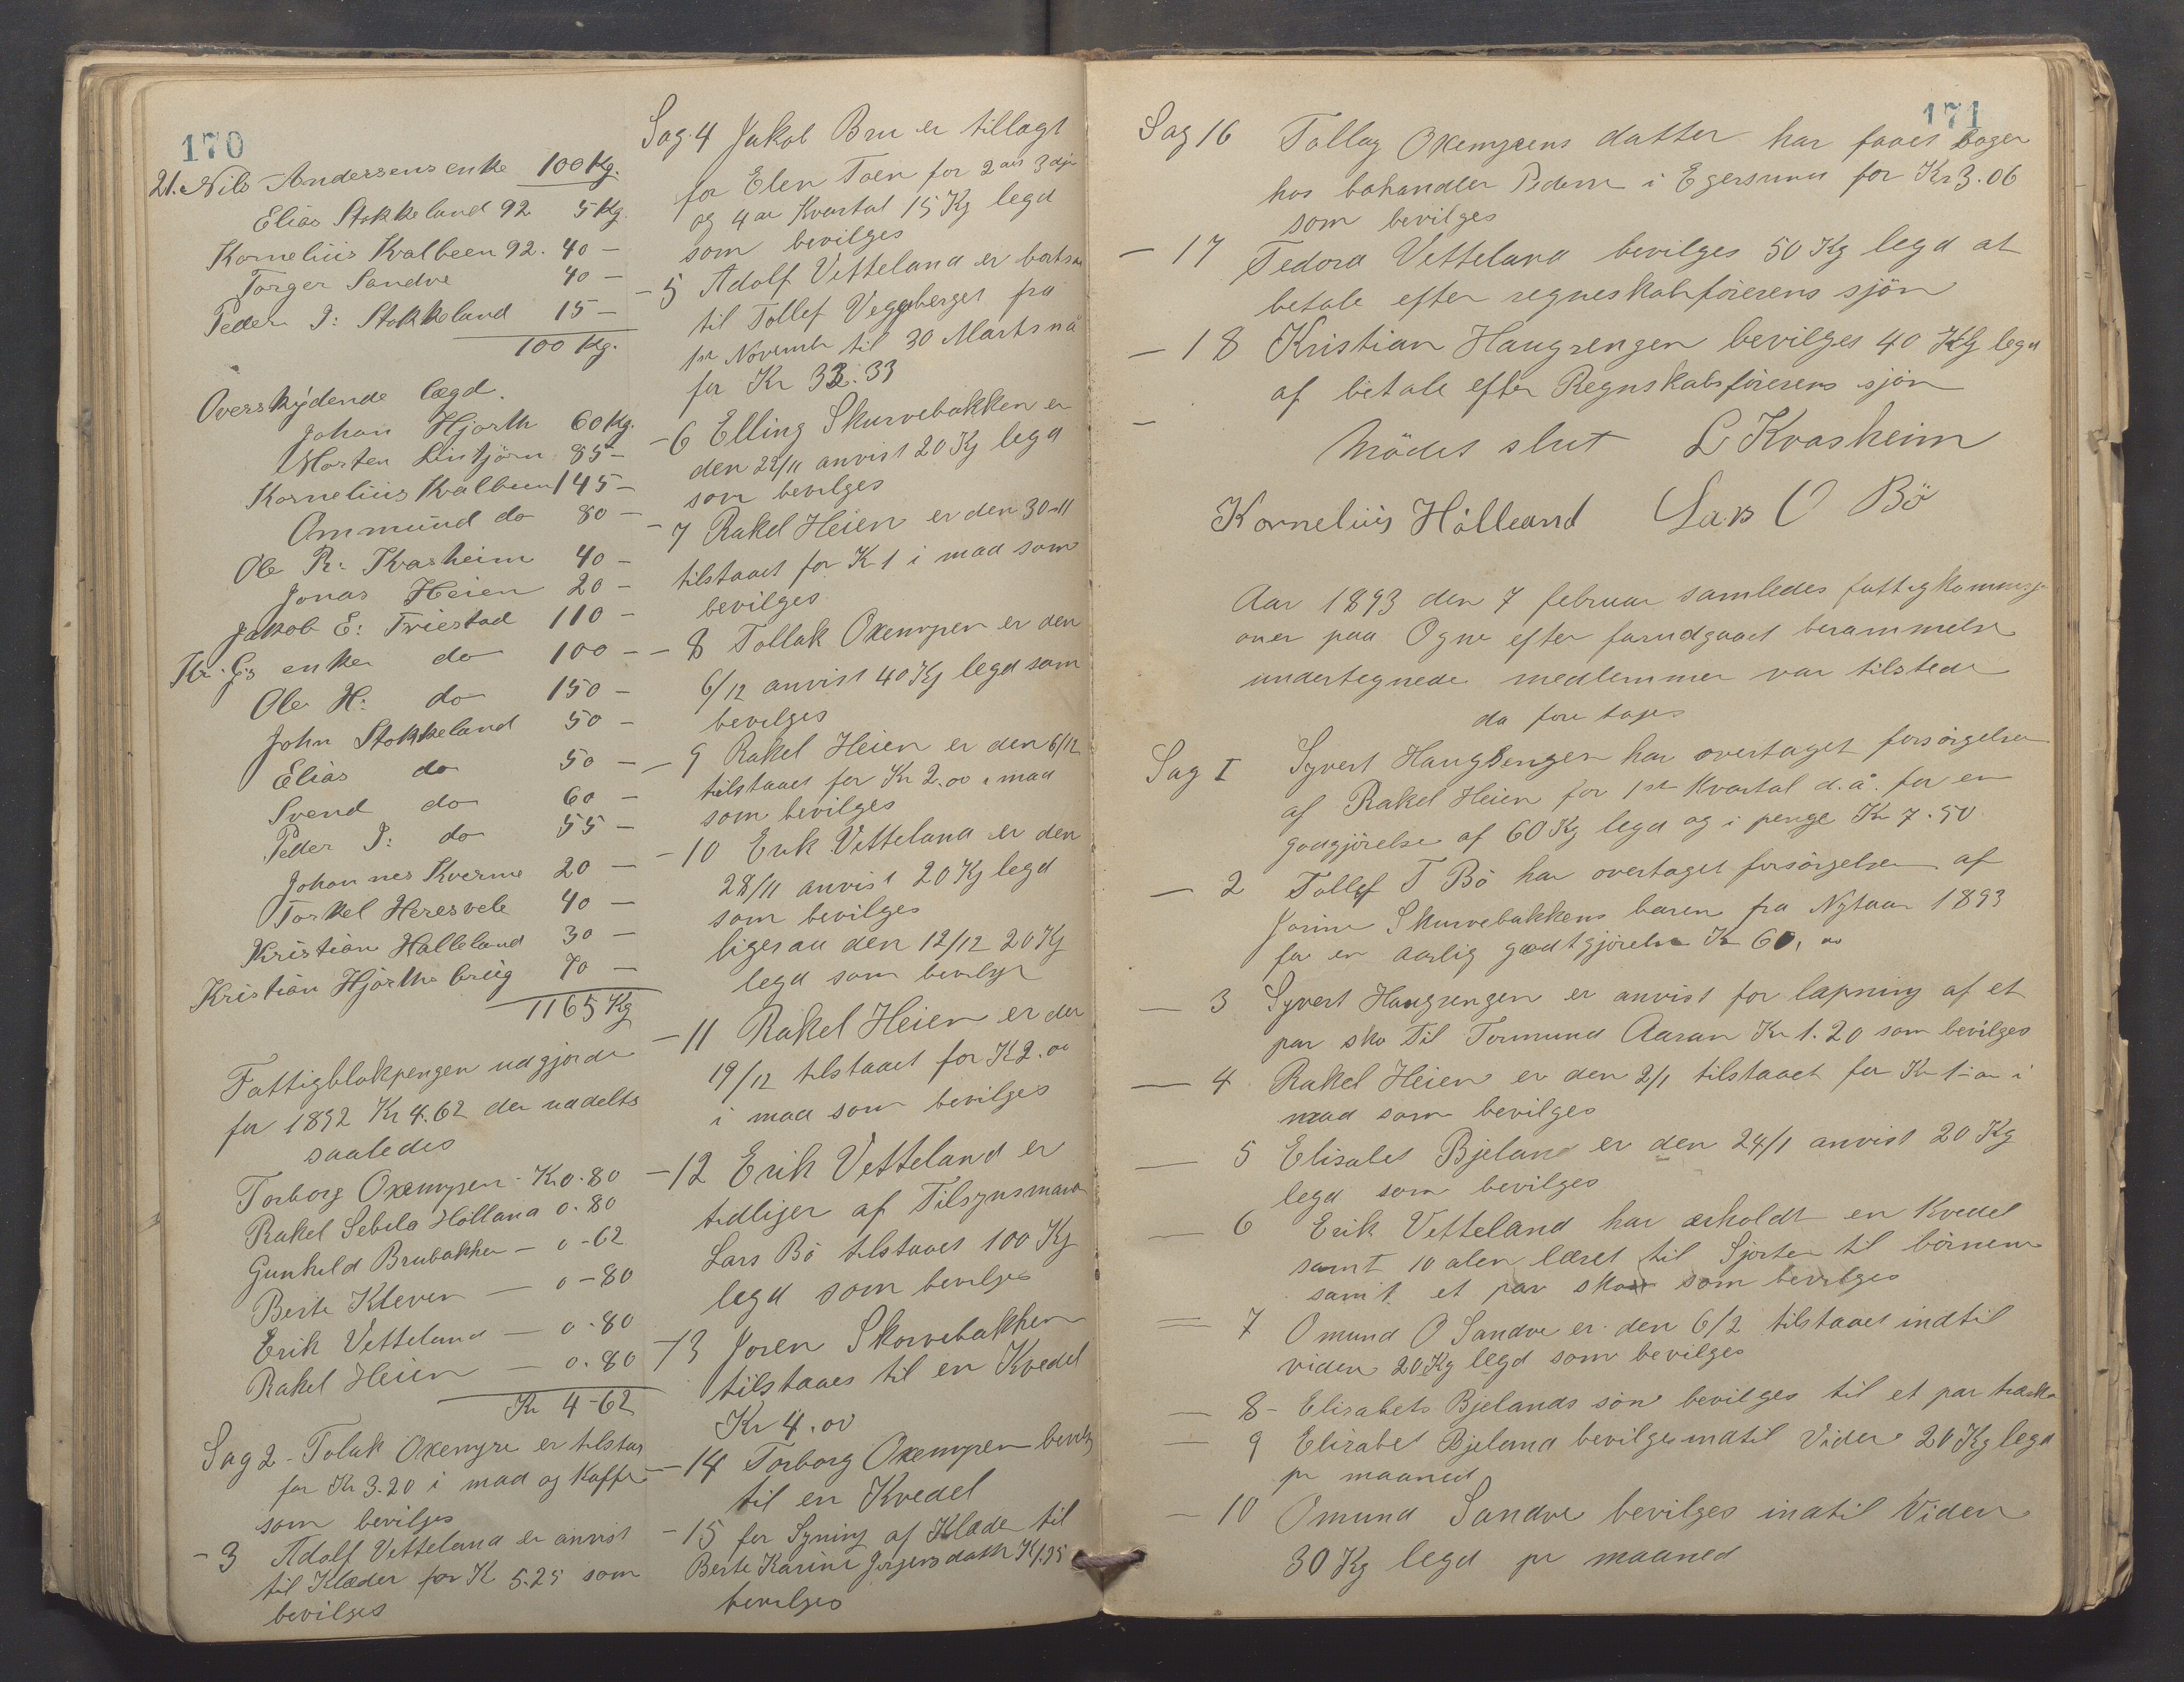 170
21. Nils Andersens enke 100 Kg.
Elias Stokkeland 92 5 Kg.
Kornelius Kvalbeen 92. 40 —
Torger Sandve 40 —
Peder J: Stokkeland 15 —
100 Kg.
Overskydende lægd.
Johan Hjorth 60 Kg.
Morten Lintjörn 85 —
Kornelius Kvalbeen 145 —
Ommund do 80 —
Ole R: Kvasheim 40 —
Jonas Heien 20 —
Jakob E: Tviestad 110 —
Kr. G's enke do 100 —
Ole H: do 150 —
John Stokkeland 50 —
Elias do 50 —
Svend do 60 —
Peder J: do 55 —
Johannes Kverme 20 —
Torkel Heresvele 40 —
Kristian Halleland 30 —
Kristian Hjorths brug 70 —
1165 Kg
Fattigblokpengen udgjorde
for 1892 Kr 4.62 der uddelts
saaledes
Torborg Oxemyren - K 0.80
Rakel Sebila Hölland 0.80
Gunhild Brubakken — 0-62
Berte Kleven — 0-80
Erik Vetteland — 0.80
Rakel Heien — 0.80
Kr 4-62
Sag 2 - Tolak Oxemyre er tilstaa
for Kr 3.20 i mad og Kaffe
som bevilges
- 3 Adolf Vetteland er anvist
til Klæder for K 5.25 som
bevilges
Sag. 4 Jakob Bru er tillagt
for Elen Toen for 2det 3dje
og 4de Kvartal 15 Kg legd
som bevilges
- 5 Adolf Vetteland er bortsat
til Tollef Veggberget fra
1st November til 30 Marts nä
for Kr 33.33
- 6 Elling Skurvebakken er
den 22/11 anvist 20 Kg legd
som bevilges
- 7 Rakel Heien er den 30-11
tilstaaet for K 1 i mad som
bevilges
- 8 Tollak Oxemyren er den
6/12 anvist 40 Kg legd som
bevilges
- 9 Rakel Heien er den 6/12
tilstaaet for Kr 2.00 i mad
som bevilges
- 10 Erik Vetteland er den
28/11 anvist 20 Kg legd
som bevilges
ligesaa den 12/12 20 Kg
legd som bevilges
- 11 Rakel Heien er den
19/12 tilstaaet for K 2.00
i mad som bevilges
- 12 Erik Vetteland er
tidliger af Tilsynsmand
Lars Bö tilstaaet 100 Kg
legd som bevilges
- 13 Joren Skorvebakken
tilstaaes til en Kvedel
Kr 4.00
- 14 Torborg Oxemyren bevilg
til en Kvedel
- 15 for Syning af Klæder til
Berte Karine Jørgens datter K 1.35
bevilges
171
Sag 16 Tollag Oxemyrens datter har faaet bøger
hos bohandler Pedersen i Egersund for Kr 3.06
som bevilges
- 17 Tedora Vetteland bevilges 50 Kg legd at
betale efter regneskabsførerens sjön
- 18 Kristian Haugsengen bevilges 40 Kg legd
af betale efter Regnskabsförerens sjön
-
Mödet slut L Kvasheim
Kornelius Hölland Lars O Bö
Aar 1893 den 7 februar samledes fattigkommisj
oner paa Ogne efter forudgaaet berammelse
undertegnede medlemmer var tilstede
da fore toges
Sag I Syvert Haugsengen har overtaget forsörgelsen
af Rakel Heien for 1st Kvartal d.å. for en
godgjörelse af 60 Kg legd og i penge Kr 7.50
— 2 Tollef T Bö har overtaget forsörgelsen af
Jorine Skurvebakkens baren fra Nytaar 1893
for en aarlig godtgjörelse Kr 60,00
— 3 Syvert Haugsengen er anvist for lapning af et
par sko til Tormund Aaran Kr 1.20 som bevilges
— 4 Rakel Heien er den 2/1 tilstaaet for Kr 1-00 i
mad som bevilges
— 5 Elisabet Bjeland er den 24/1 anvist 20 Kg
legd som bevilges
— 6 Erik Vetteland har erholdt en Kvedel
samt 10 alen læret til Sjorter til börnene
samt et par sko som bevilges
— 7 Omund O Sandve er den 6/2 tilstaaet indtil
viden 20 Kg legd som bevilges
— 8 - Elisabets Bjelands sön bevilges til et par træsko
— 9 Elisabet Bjeland bevilges indtil Viden 20 Kg legd
pr maaned
— 10 Omund Sandve bevilges indtil Viden
30 Kg legd pr maaned